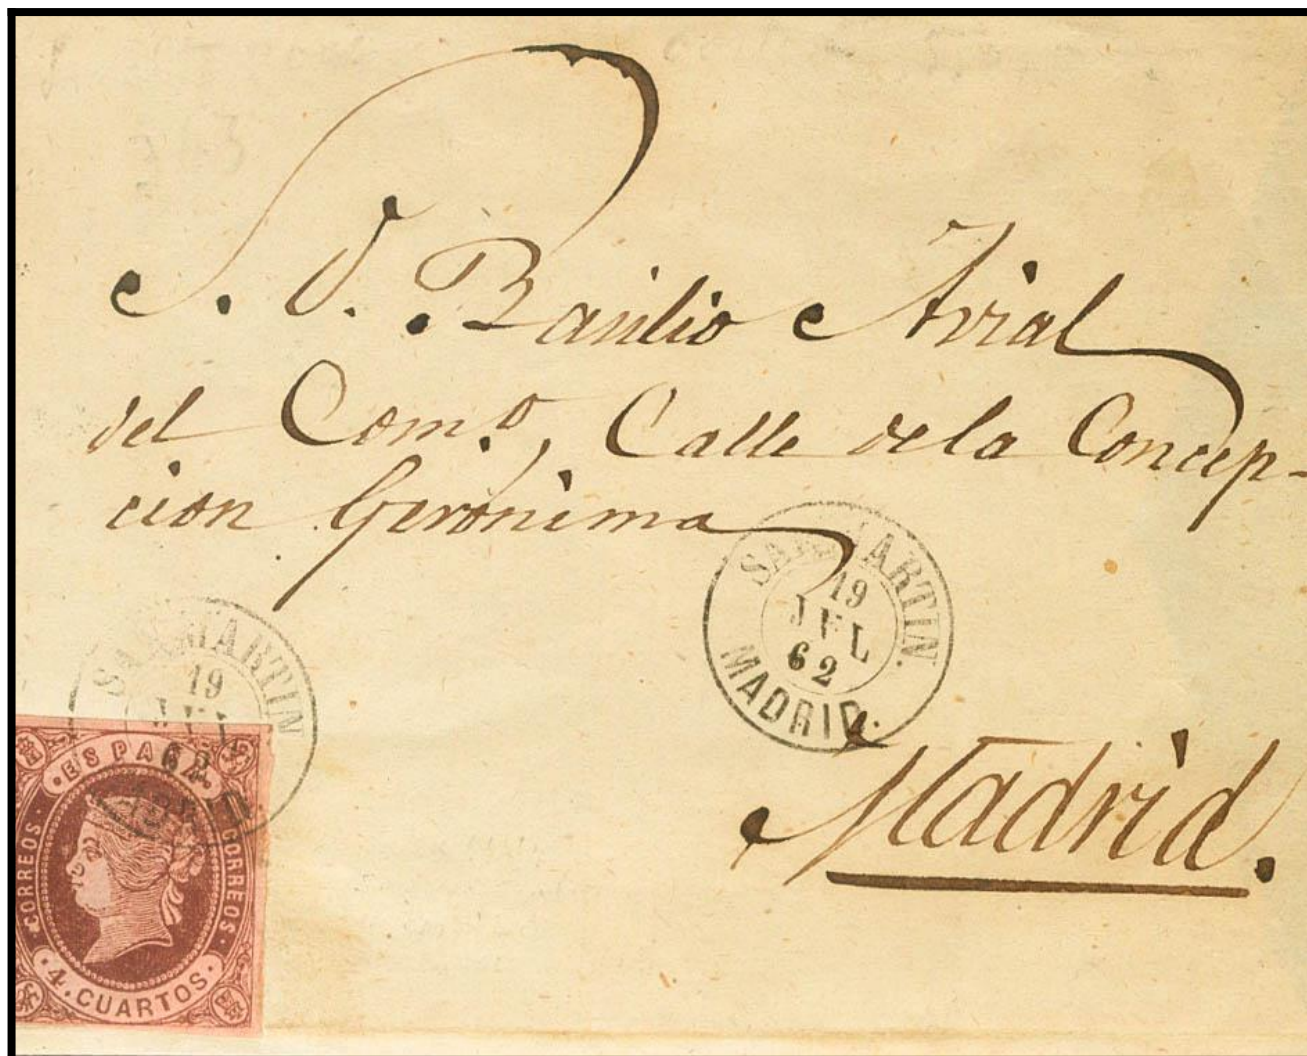 S. D. Basilio Avial
del Com.º, Calle de la Concep-
cion Geronima
SAN MARTIN.
19
JUL
62
MADRID.
Madrid.
SAN MARTIN
19
JUL
62
ESPAÑA
CORREOS
CORREOS
4. CUARTOS